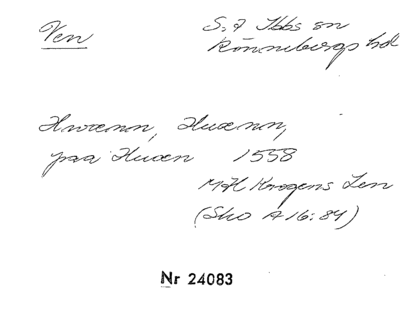 Ven
S:t Ibbs sn
Rönnebergs hd
Hwænn, Huænn,
paa Huæn 1558
M H Krogens Len
(Sko A 16:84)
Nr 24083